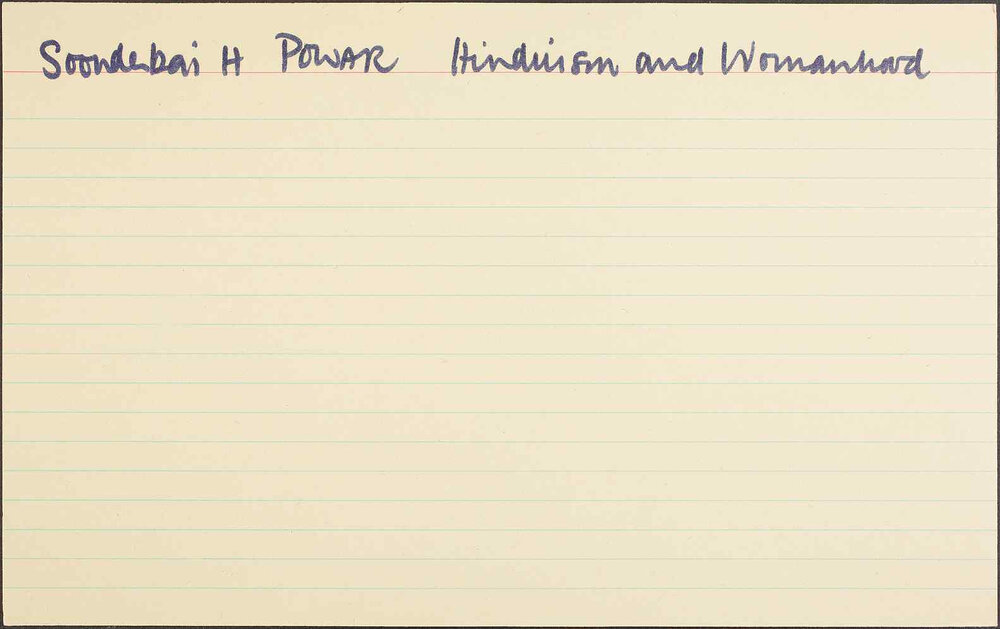 Soonderbai H POWAR Hinduism and Womanhood